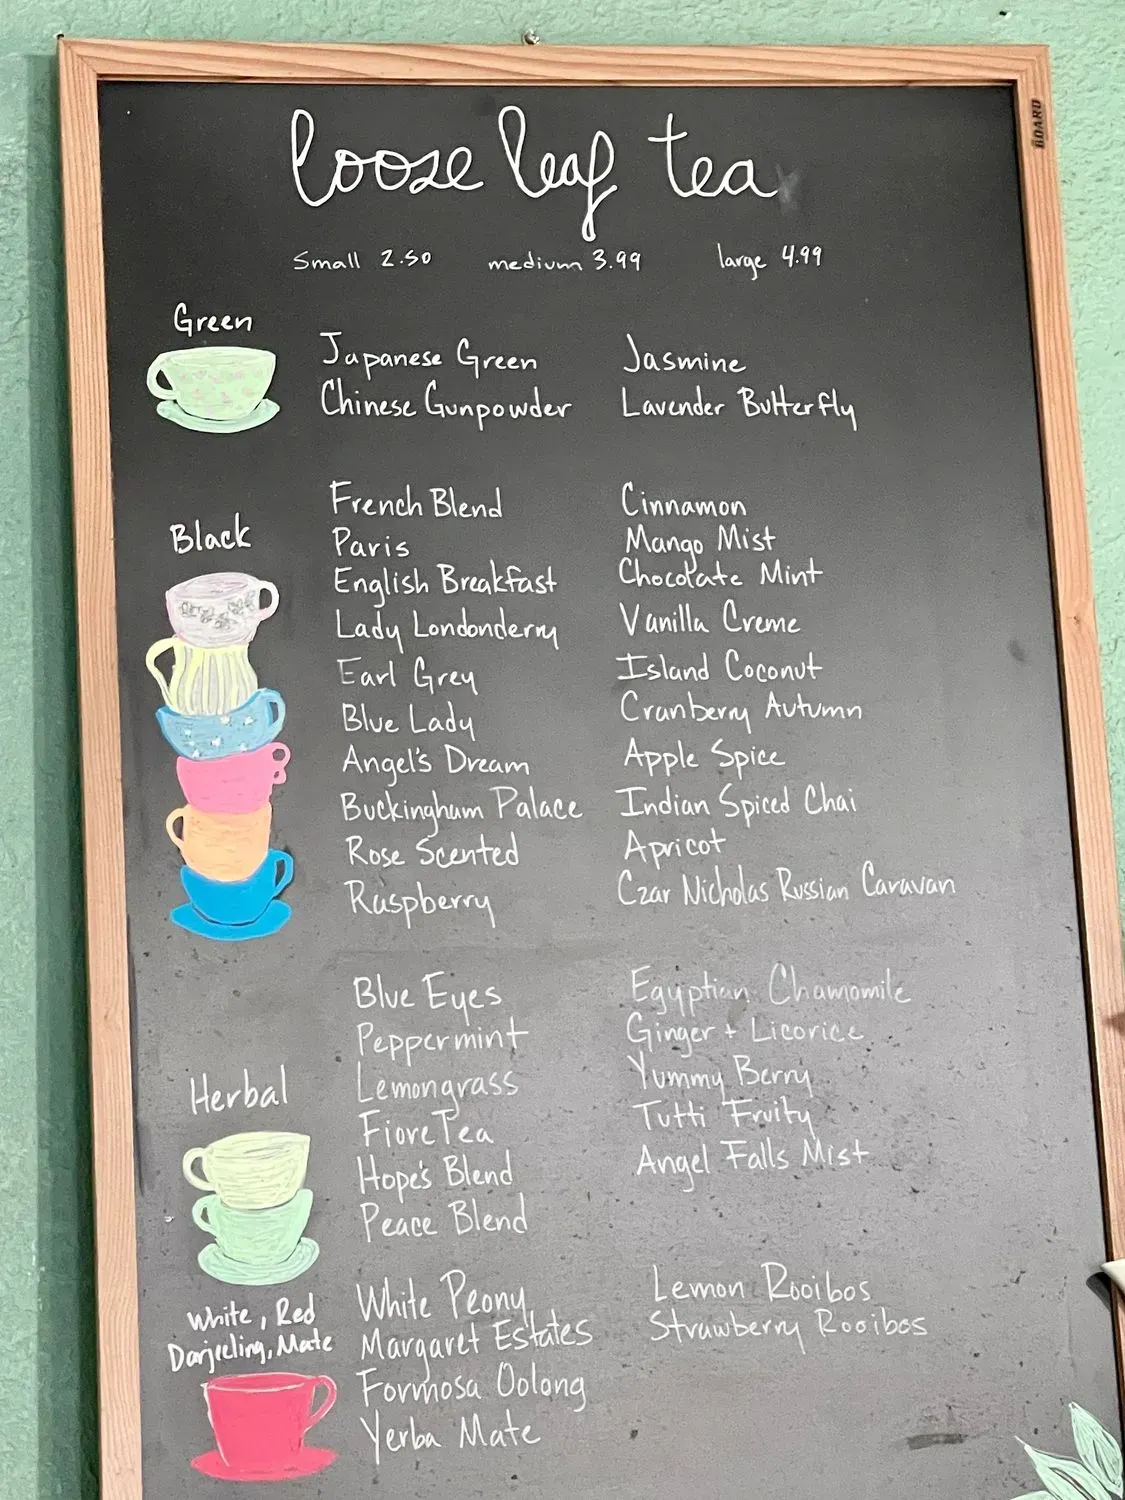 loose leaf tea
BOARD
Small 2.50 medium 3.99 large 4.99
Green
Japanese Green Jasmine
Chinese Gunpowder Lavender Butterfly
Black
French Blend Cinnamon
Paris Mango Mist
English Breakfast Chocolate Mint
Lady Londonderry Vanilla Creme
Earl Grey Island Coconut
Blue Lady Cranberry Autumn
Angel's Dream Apple Spice
Buckingham Palace Indian Spiced Chai
Rose Scented Apricot
Raspberry Czar Nicholas Russian Caravan
Herbal
Blue Eyes Egyptian Chamomile
Peppermint Ginger + Licorice
Lemongrass Yummy Berry
Fiore Tea Tutti Fruity
Hope's Blend Angel Falls Mist
Peace Blend
White, Red
Darjeeling, Mate
White Peony Lemon Rooibos
Margaret Estates Strawberry Rooibos
Formosa Oolong
Yerba Mate